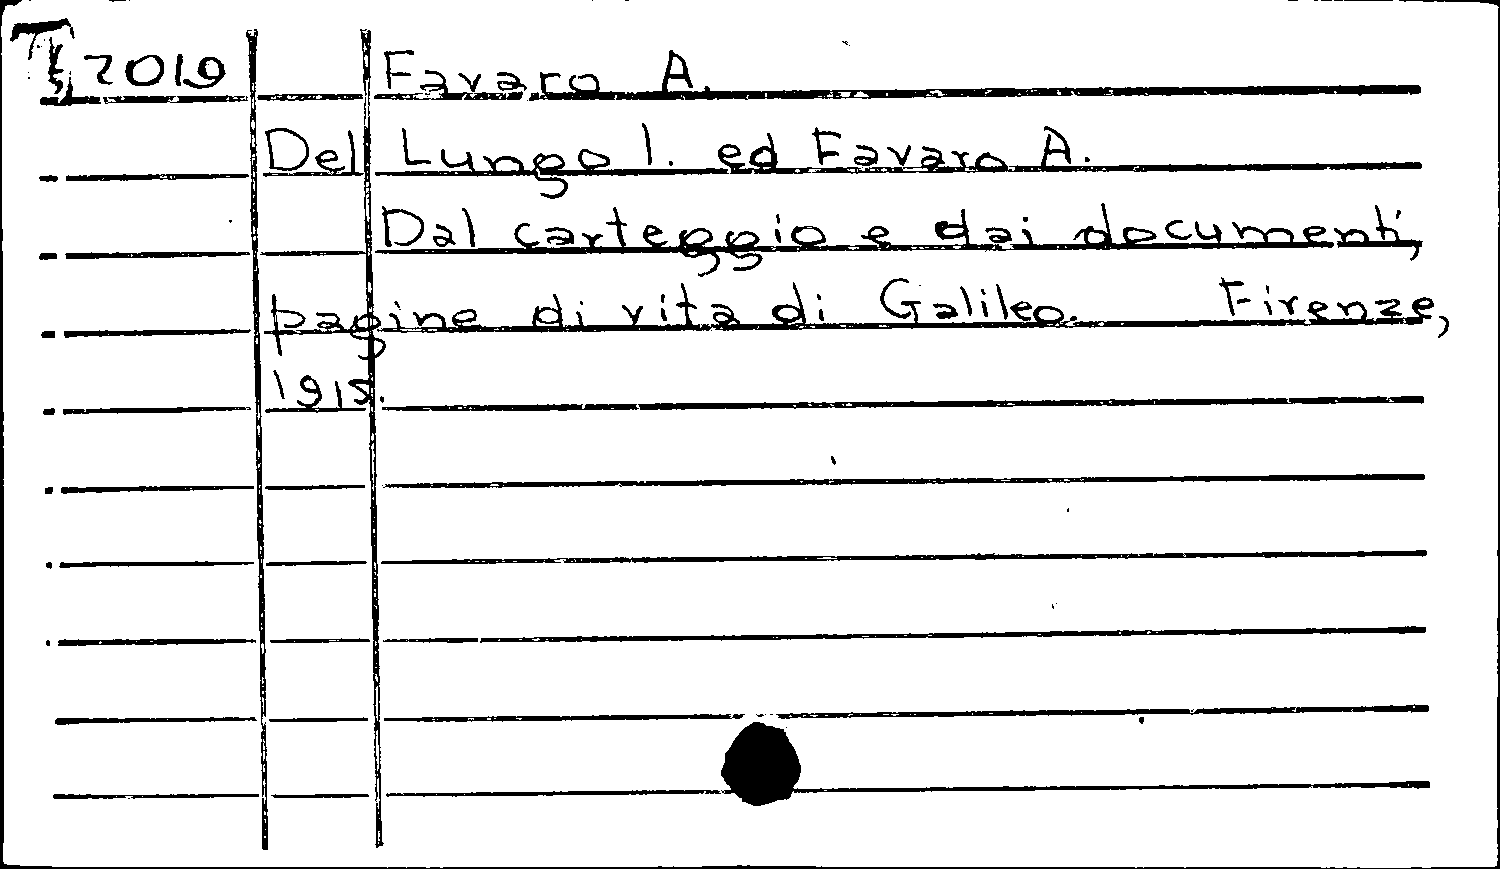 2019 Favaro A.
Del Lungo I. ed Favaro A.
Dal carteggio e dai documenti,
pagine di vita di Galileo. Firenze,
1915.